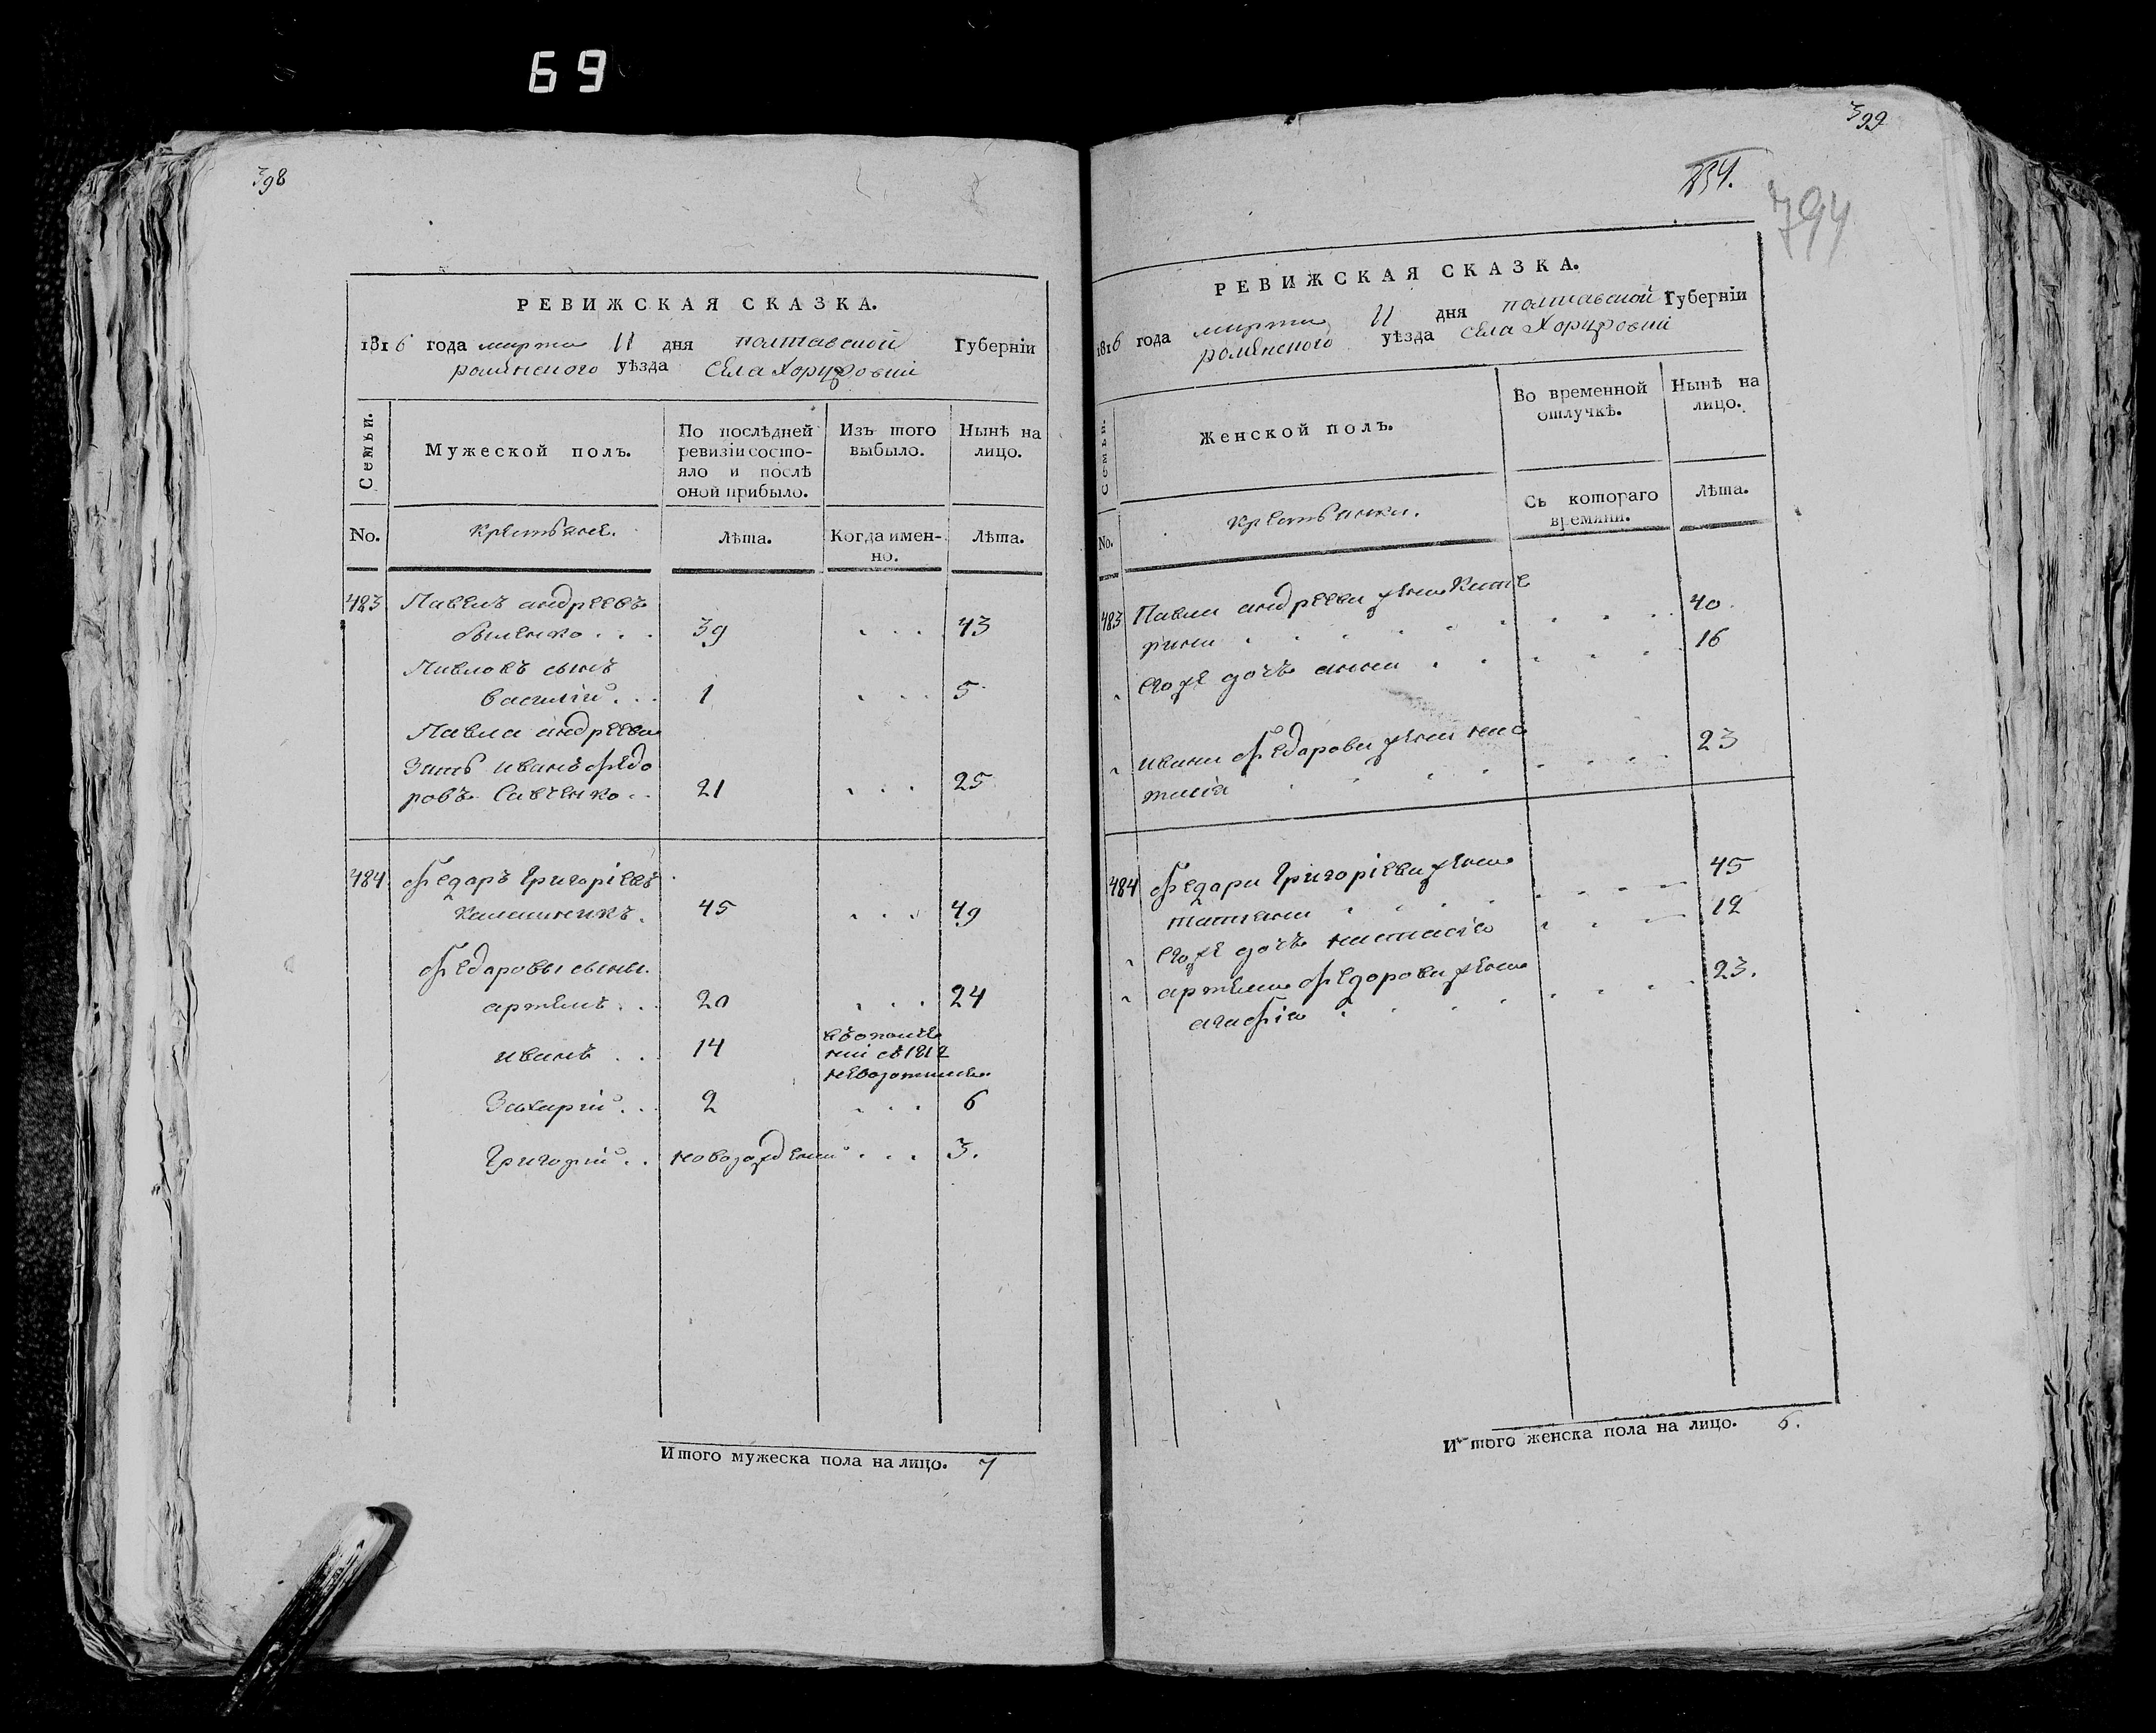 69
398
РЕВИЖСКАЯ СКАЗКА.
1816 года марта 11 дня полтавской Губерніи
роменского уѣзда Села Хоружовки
Семьи.
Мужеской полъ.
По послѣдней
ревизіи состо-
яло и послѣ
оной прибыло.
Изъ того
выбыло.
Нынѣ на
лицо.
No.
крестьяне.
Лѣта.
Когда имен-
но.
Лѣта.
483 Павелъ андреевъ
39 . . . 43
Павловъ сынъ
василій . . 1 . . . 5
Павла андреева
Зять иванъ федо
ровъ Савченко . . 21 . . . 25
484 федоръ григоріевъ
калашникъ . 45 . . . 49
федоровы сыны.
артемъ . . 20 . . . 24
иванъ . . 14
с 1812
Захарій . . 2 . . . 6
григорій . . новорожденій . . . 3.
Итого мужеска пола на лицо. 7
399
794
РЕВИЖСКАЯ СКАЗКА.
1816 года марта 11 дня полтавской Губерніи
роменского уѣзда Села Хоружовки
Семьи.
Женской полъ.
Во временной
отлучкѣ.
Нынѣ на
лицо.
No.
крестьянки.
Съ котораго
времяни.
Лѣта.
483 Павла андреева жена кате
рина . . . . . . . . 40.
его же дочь анна . . . . . 16
ивана федорова жена нас
тасія . . . . . . . 23
484 федора григоріева жена
татіана . . . . . . . 45
его же дочь настасія . . . 12
артема федорова жена
агафія . . . . . . . 23.
Итого женска пола на лицо. 6.